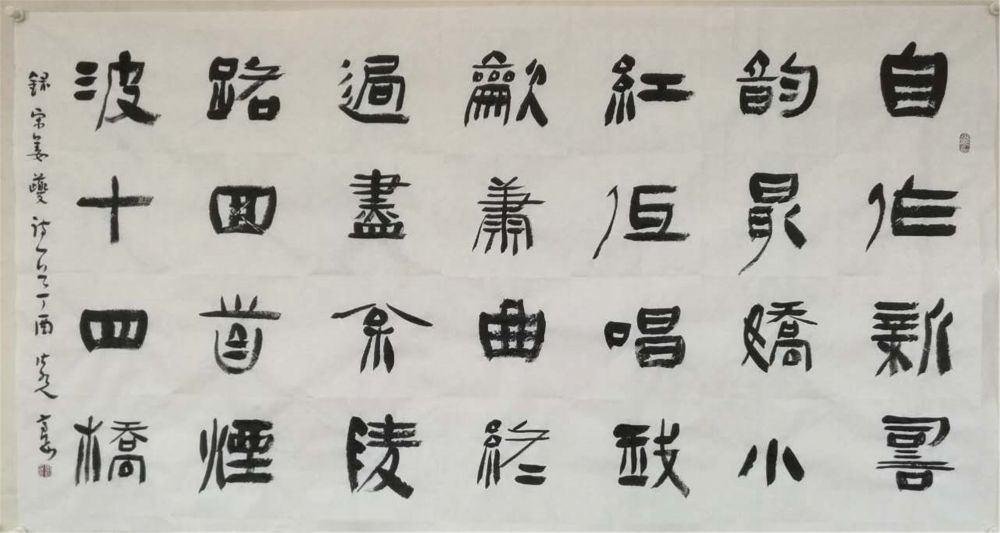 自作新詞
韵最嬌小
紅低唱我
龡蕭曲終
過盡松陵
路回首煙
波十四橋
錄宋姜夔詩一首丁酉